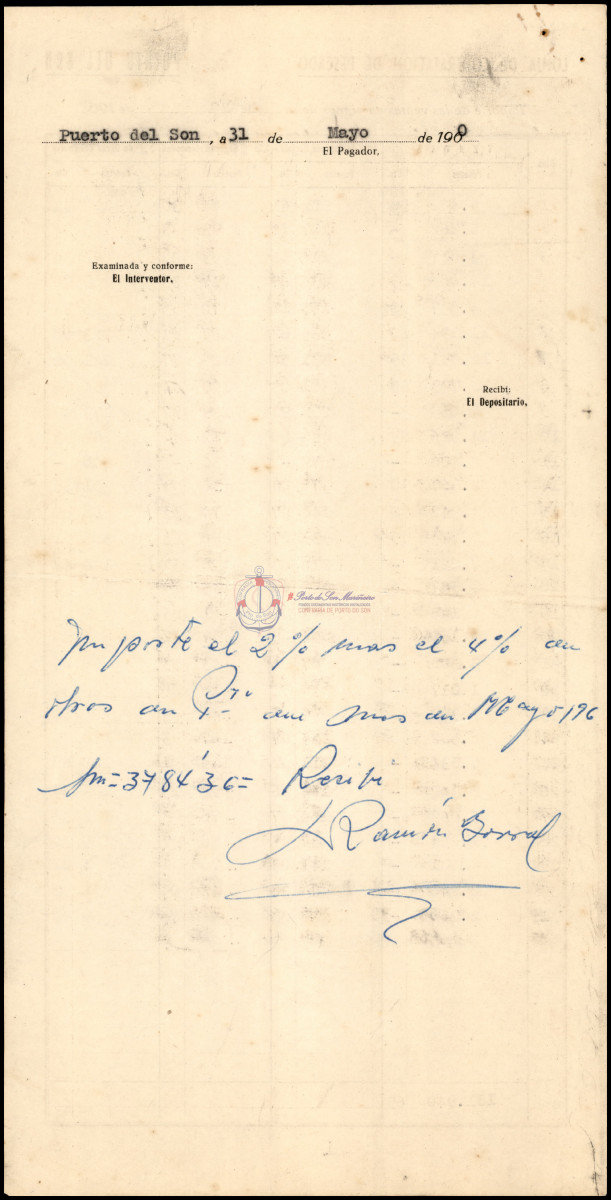 Puerto del Son, a 31 de Mayo de 1960
El Pagador,
Examinada y conforme:
El Interventor,
Recibí:
El Depositario,
Porto do Son Mariñeiro
CONFRARÍA DE PORTO DO SON
Inporte el 2% mas el 4% de
otros en mes de Mayo 196
Son=3784'36= Recibí
Ramón